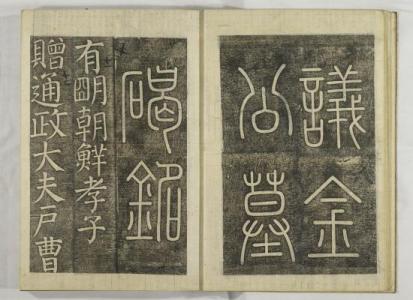 議金
公墓
碣銘
有明朝鮮孝子
贈通政大夫戶曹